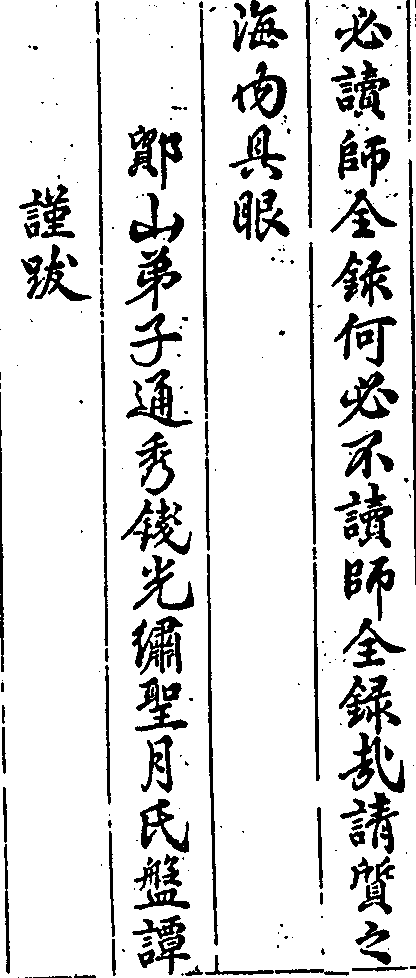 必讀師全録何必不讀師全録哉請質之
海内具眼
鄮山弟子通秀錢光繡聖月氏盥譚
謹跋